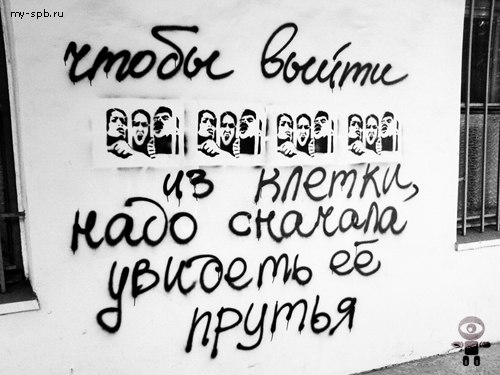 my-spb.ru
чтобы выйти
из клетки,
надо сначала
увидеть её
прутья